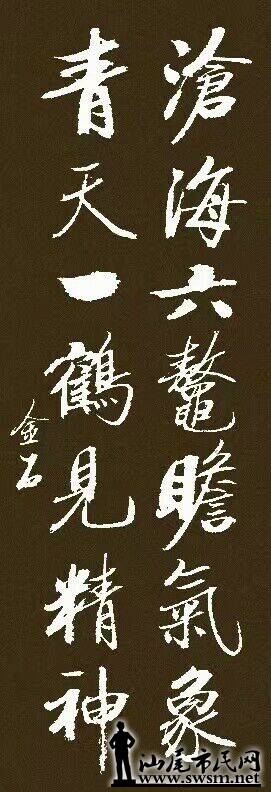 滄海六鼇瞻氣象
青天一鶴見精神
金石
汕尾市民网
www.swsm.net